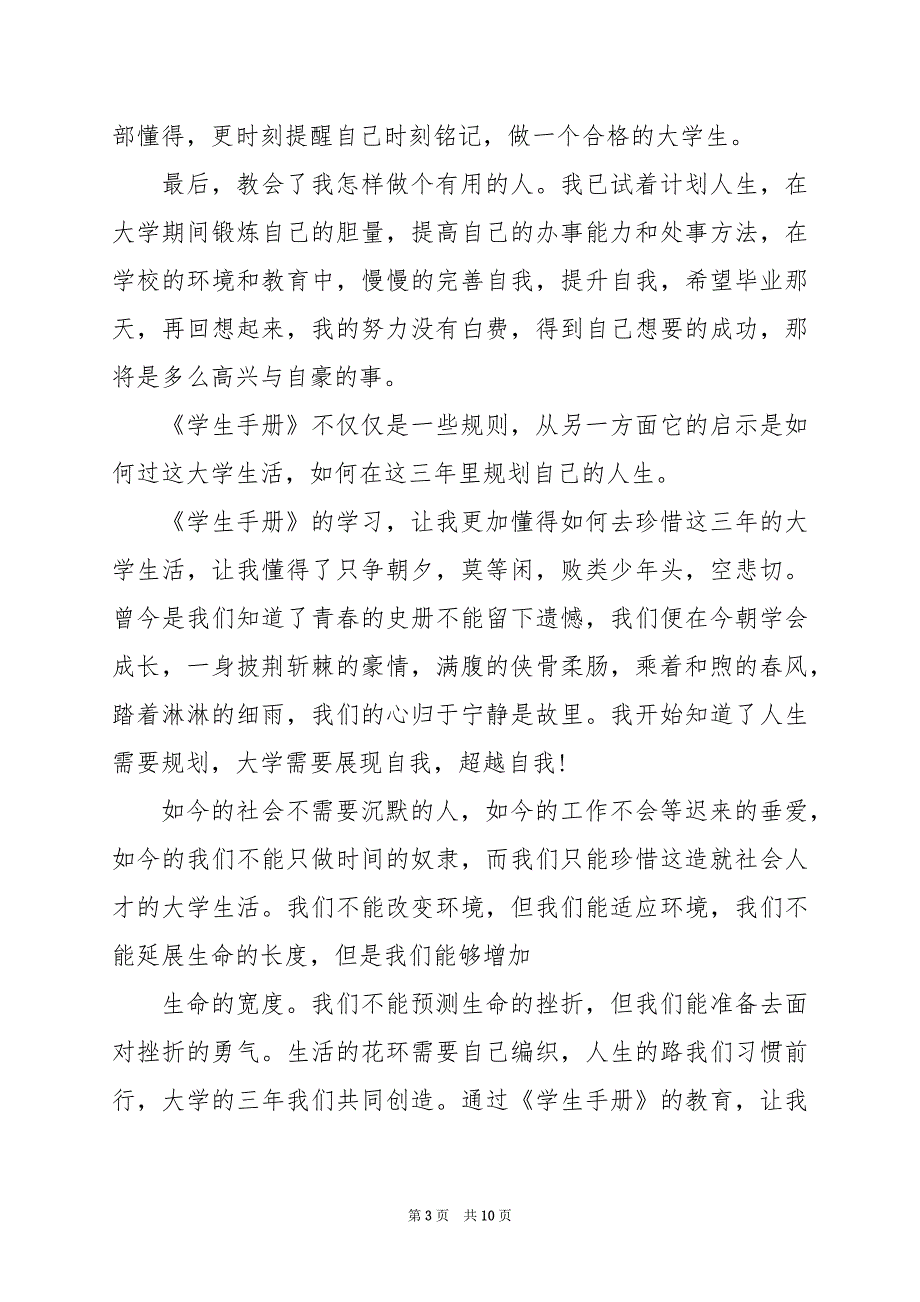 部懂得，更时刻提醒自己时刻铭记，做一个合格的大学生。
最后，教会了我怎样做个有用的人。我已试着计划人生，在
大学期间锻炼自己的胆量，提高自己的办事能力和处事方法，在
学校的环境和教育中，慢慢的完善自我，提升自我，希望毕业那
天，再回想起来，我的努力没有白费，得到自己想要的成功，那
将是多么高兴与自豪的事。
《学生手册》不仅仅是一些规则，从另一方面它的启示是如
何过这大学生活，如何在这三年里规划自己的人生。
《学生手册》的学习，让我更加懂得如何去珍惜这三年的大
学生活，让我懂得了只争朝夕，莫等闲，败类少年头，空悲切。
曾今是我们知道了青春的史册不能留下遗憾，我们便在今朝学会
成长，一身披荆斩棘的豪情，满腹的侠骨柔肠，乘着和煦的春风，
踏着淋淋的细雨，我们的心归于宁静是故里。我开始知道了人生
需要规划，大学需要展现自我，超越自我!
如今的社会不需要沉默的人，如今的工作不会等迟来的垂爱，
如今的我们不能只做时间的奴隶，而我们只能珍惜这造就社会人
才的大学生活。我们不能改变环境，但我们能适应环境，我们不
能延展生命的长度，但是我们能够增加
生命的宽度。我们不能预测生命的挫折，但我们能准备去面
对挫折的勇气。生活的花环需要自己编织，人生的路我们习惯前
行，大学的三年我们共同创造。通过《学生手册》的教育，让我
第 3 页 共 10 页